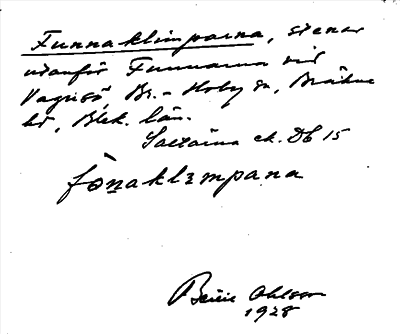 Funnaklimparna, stenar
utanför Funnarna vid
Vagnsö, Br.-Hoby sn, Bräkne
hd, Blek. län.
Saltärna ek. Db 15
fònaklɛmpana
Bertil Ohlsson
1928